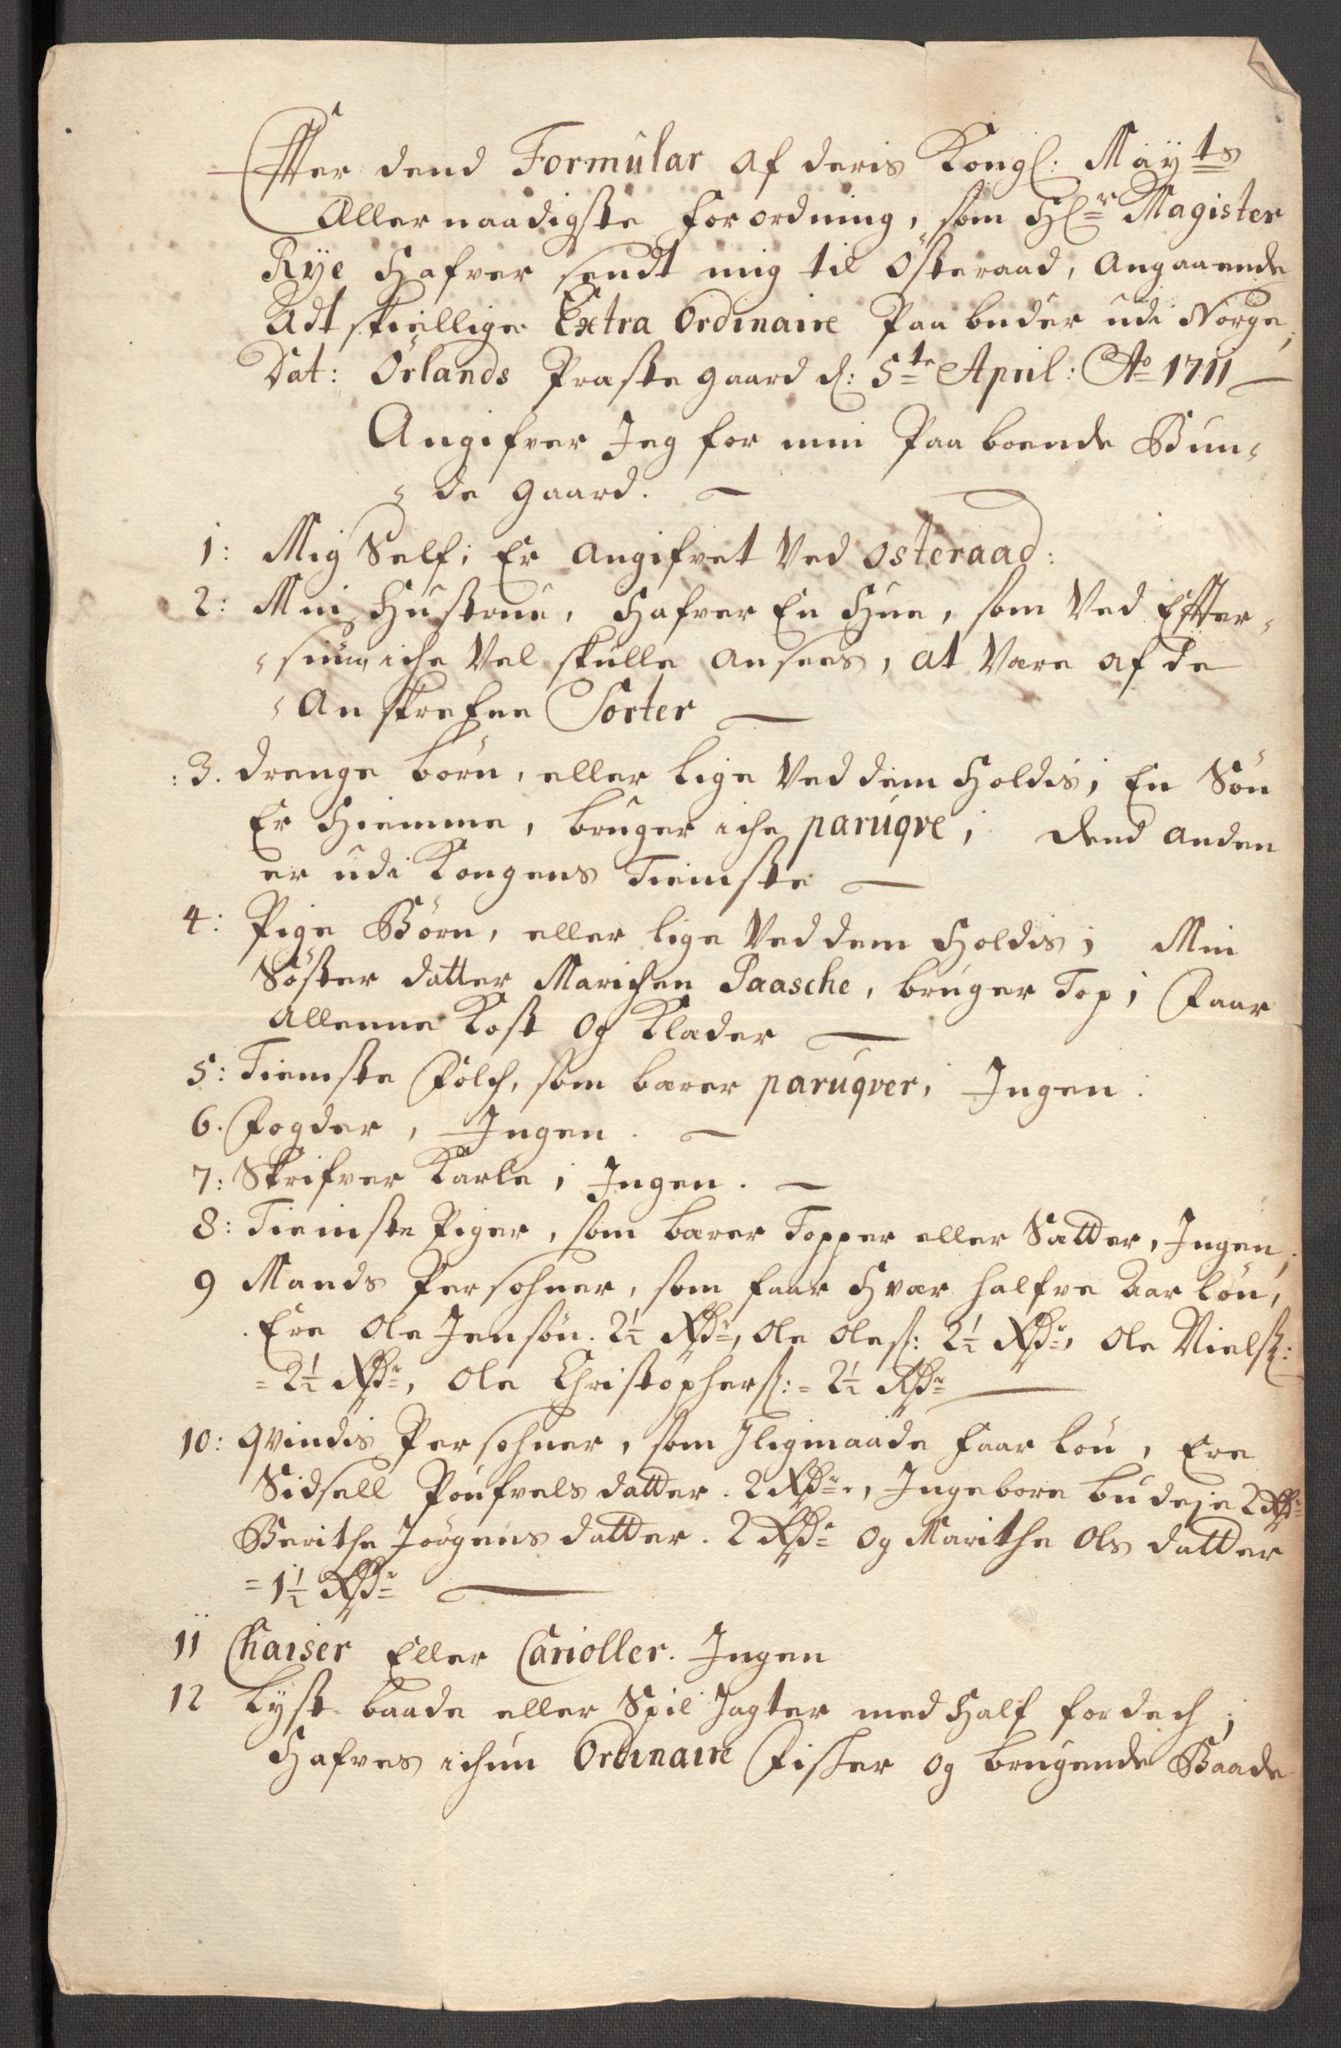 Effter dend Formular af deris Kongl: Mayts
Allernaadigste forordning, som Hr Magister
Rÿe Hafver sendt mig til Österaad, angaaende
Adtskiellige Extra Ordinaire Paabuder udi Norge,
Dat: Örlands Præstegaard d: 5te April: Ao 1711
Angifver Jeg for min Paaboende Bun-
-de gaard.
1: Mig Self; Er angifvet Ved Osteraad:
2: Min Hustrue, Hafver En Hue, som Ved Effter-
-siun iche Vel skulle ansees, at Være af de
Anskrefne Sorter
:3. Drenge börn, eller lige Ved dem Holdis; En Sön
Er Hiemme, bruger iche paruqve; Dend anden
er udi Kongens Tieniste
4: Pige Börn, eller lige Ved dem Holdis; Min
Söster datter Marichen Paasche, bruger Top; Faar
Allenne Kost og Klæder
5: Tieniste Folch, som bærer paruqver; Ingen.
6. Fogder, Ingen.
7: Skrifver Karle; Ingen.
8: Tieniste Piger, som bærer Topper eller Sætter, Ingen;
9 Mands Persohner, som faar Hvær halfve Aar lön,
Ere Ole Jensön. 2½ Rdr, Ole Oles: 2½ Rdr, Ole Niels:
= 2½ Rdr, Ole Christophers: = 2½ Rdr
10: Qvindis Persohner, som Iligmaade faar lön, Ere
Sidsell Poufvels datter. 2 Rdr, Ingebore budeje 2 Rdr
Berithe Jörgens datter. 2 Rdr og Marithe Ols datter
= 1½ Rdr
11 Chaiser Eller Carioller. Ingen
12 Lyst baade eller Spil Jagter med Half fordech;
Hafves ichun Ordinaire Fisker og brugende Baade